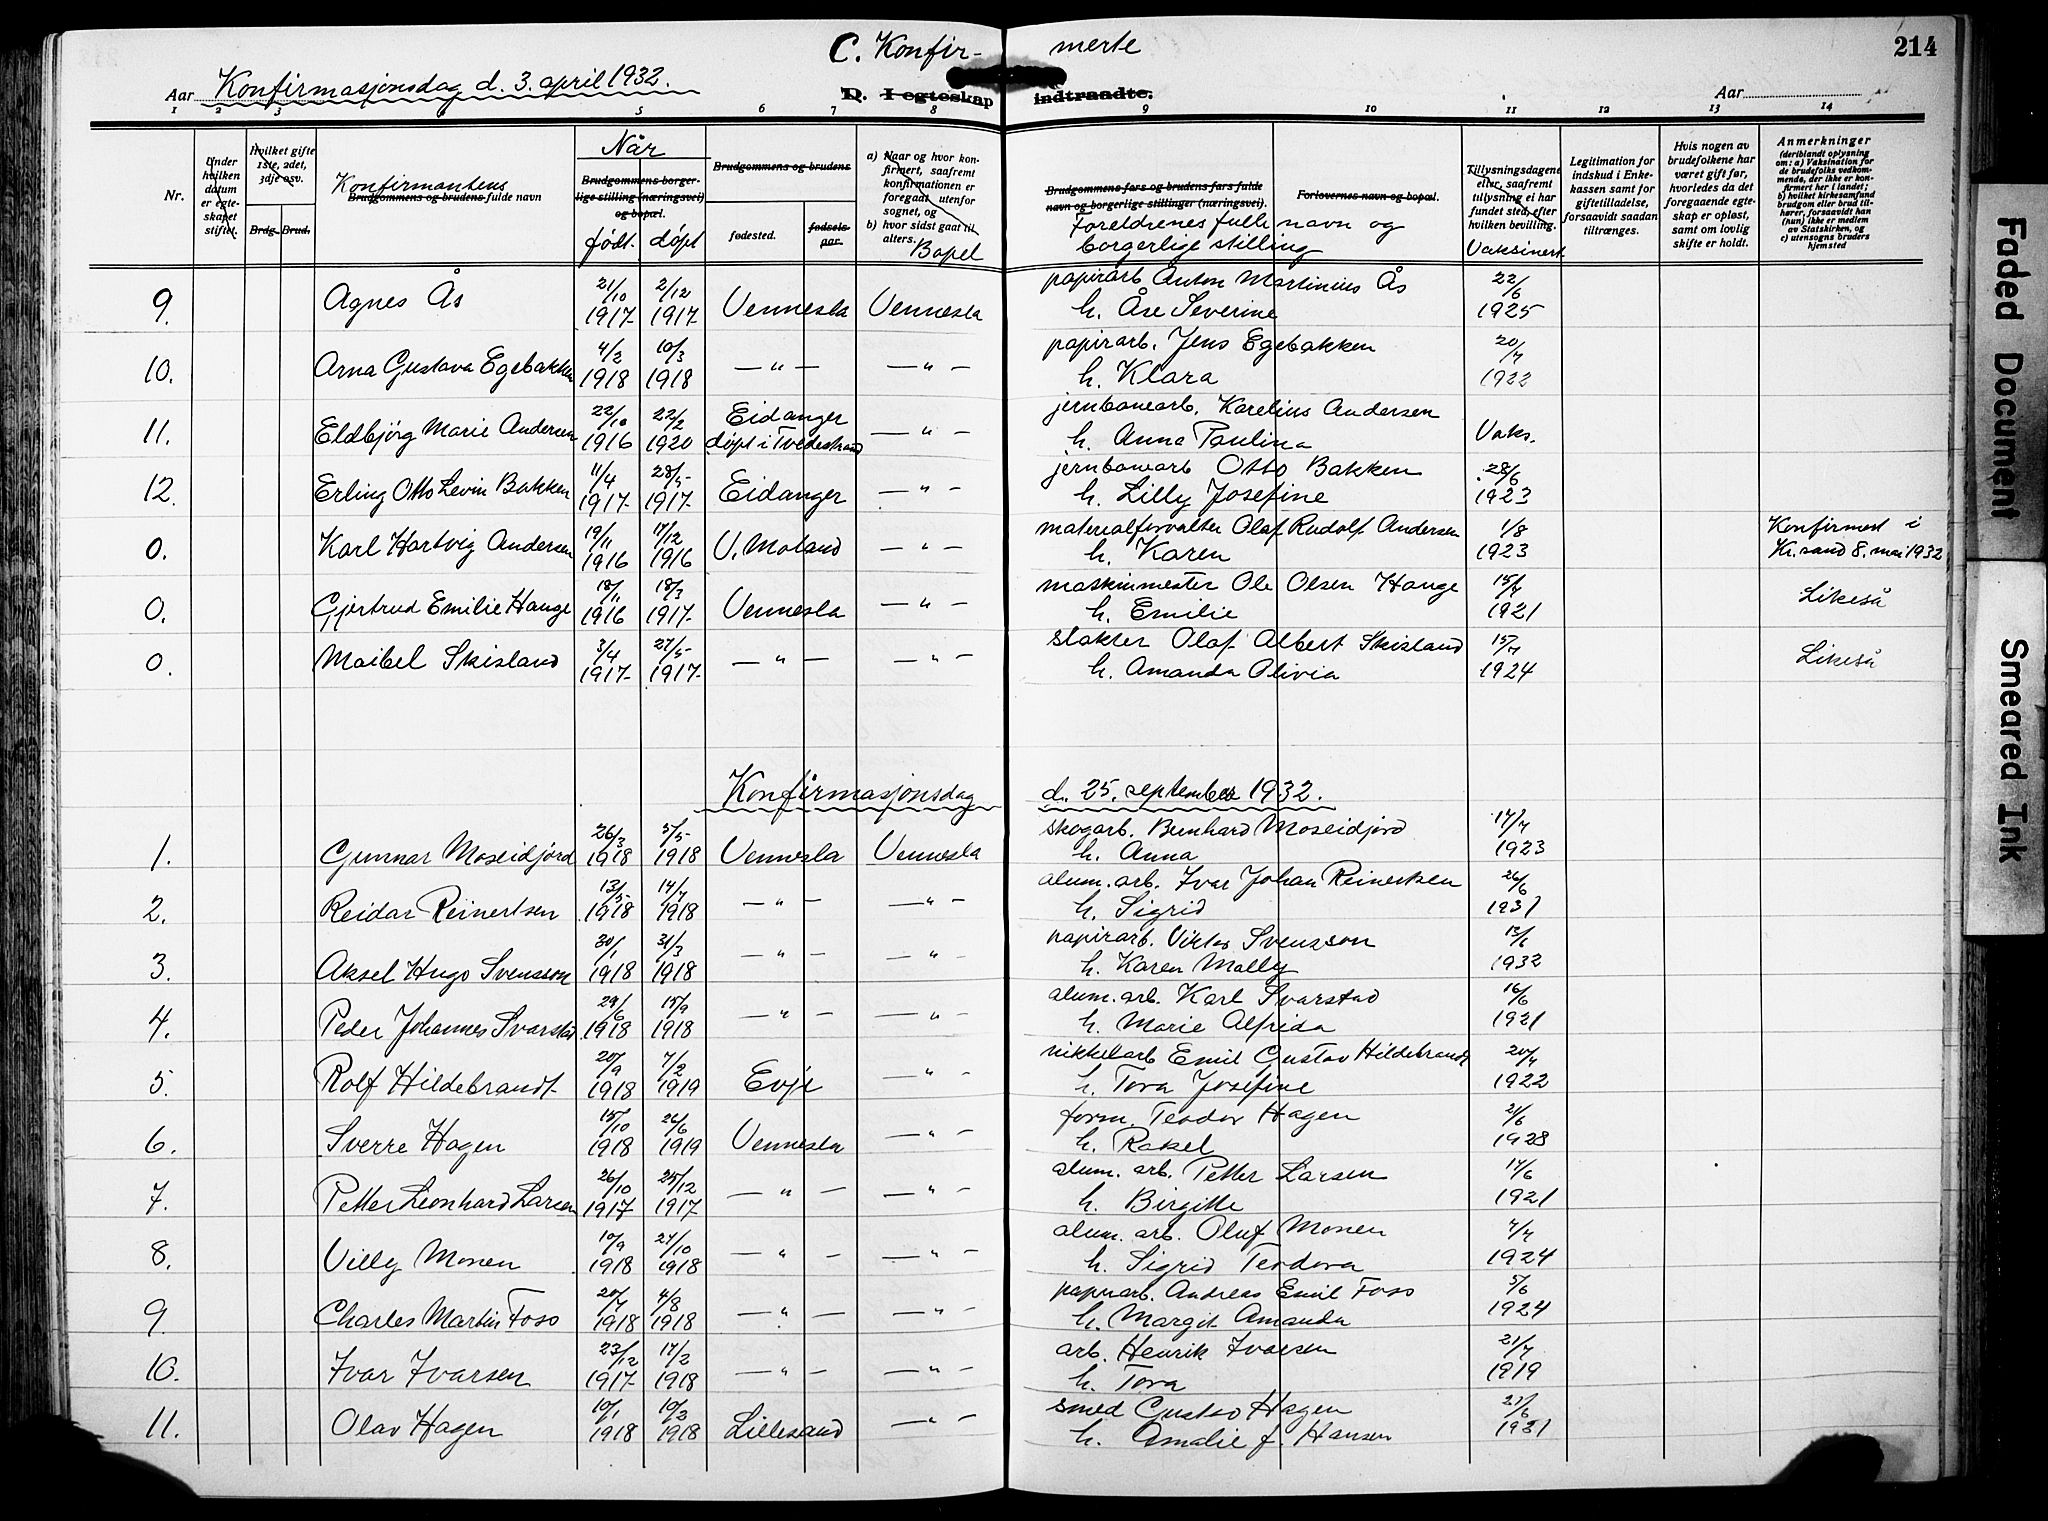 C. Konfir- merte
214
Aar Konfirmasjonsdag d. 3. april 1932.
D. I egteskap indtraadte.
Aar
1 2 3 5 6 7 8 9 10 11 12 13 14
Nr.
Under hvilken datum er egteskapet stiftet.
Hvilket gifte 1ste, 2det, 3dje osv.
Brdg. Brud.
Konfirmantens
Brudgommens og brudens fulde navn
Når
Brudgommens borgerlige stilling (næringsvei) og bopæl.
født. døpt
Brudgommens og brudens
fødested. fødselsaar.
a) Naar og hvor konfirmert, saafremt konfirmationen er foregaat utenfor sognet, og
b) hvor sidst gaat til alters.
Bopel
Brudgommens fars og brudens fars fulde navn og borgerlige stillinger (næringsvei).
Foreldrenes fulle navn og
borgerlige stilling
Forlovernes navn og bopæl.
Tillysningsdagene eller, saafremt tillysning ei har fundet sted, efter hvilken bevilling.
Vaksinert
Legitimation for indskud i Enkekassen samt for giftetilladelse, forsaavidt saadan tiltrænges.
Hvis nogen av brudefolkene har været gift før, hvorledes da det foregaaende egteskap er opløst, samt om lovlig skifte er holdt.
Anmerkninger (deriblandt oplysning om: a) Vaksination for de brudefolks vedkommende, der ikke er konfirmert her i landet; b) hvilket kirkesamfund brudgom eller brud tilhører, forsaavidt han (hun) ikke er medlem av Statskirken, og c) utensogns bruders hjemsted
9. Agnes Ås 21/10 1917 2/12 1917 Vennesla Vennesla papirarb Anton Martinius Ås h. Åse Severine 22/6 1925
10. Arna Gustava Egebakken 4/2 1918 10/3 1918 — " — — " — papirarb. Jens Egebakken h. Klara 20/7 1922
11. Eldbjörg Marie Andersen 22/10 1916 22/2 1920 Eidanger døpt i Tvedestrand — " — jernbanearb. Karelius Andersen h. Anna Paulina Vaks.
12. Erling Otto Levin Bakken 11/4 1917 28/5 1917 Eidanger — " — jernbanearb Otto Bakken h. Lilly Josefine 28/6 1923
0. Karl Hartvig Andersen 19/11 1916 17/12 1916 V. Moland — " — materialforvalter Olaf Rudolf Andersen h. Karen 1/8 1923 Konfirmert i Kr.sand 8. mai 1932
0. Gjertrud Emilie Hauge 18/11 1916 18/3 1917 Vennesla — " — maskinmester Ole Olsen Hauge h. Emilie 15/7 1921 Likeså
0. Maibel Skisland 3/4 1917 27/5 1917 — " — — " — slakter Olaf Albert Skisland h. Amanda Olivia 15/7 1924 Likeså
Konfirmasjonsdag d. 25. september 1932.
1. Gunnar Moseidjord 26/3 1918 5/5 1918 Vennesla Vennesla skogarb. Bernhard Moseidjord h. Anna 17/7 1923
2. Reidar Reinertsen 13/5 1918 14/7 1918 — " — — " — alum. arb. Ivar Johan Reinertsen h. Sigrid 26/6 1931
3. Aksel Hugo Svensson 30/1 1918 31/3 1918 — " — — " — papirarb. Viktor Svensson h. Karen Mally 13/6 1932
4. Peder Johannes Svarstad 29/6 1918 15/9 1918 — " — — " — alum. arb. Karl Svarstad h. Marie Alfrida 16/6 1921
5. Rolf Hildebrandt 20/9 1918 7/2 1919 Evje — " — nikkelarb Emil Gustav Hildebrandt h. Tora Josefine 20/7 1922
6. Sverre Hagen 15/10 1918 26/6 1919 Vennesla — " — form. Teodor Hagen h. Rakel 21/6 1928
7. Petter Leonhard Larsen 26/10 1917 25/12 1917 — " — — " — alum. arb. Petter Larsen h. Birgitte 17/6 1921
8. Villy Monen 10/9 1918 27/10 1918 — " — — " — alum. arb. Oluf Monen h. Sigrid Teodora 7/7 1924
9. Charles Martin Foso 20/7 1918 4/8 1918 — " — — " — papirarb. Andreas Emil Foso h. Margit Amanda 5/6 1924
10. Ivar Ivarsen 23/12 1917 17/2 1918 — " — — " — arb. Henrik Ivarsen h. Tora 21/7 1919
11. Olav Hagen 10/1 1918 10/2 1918 Lillesand — " — smed Gustav Hagen h. Amalie f. Hansen 21/6 1931
Faded Document
Smeared Ink